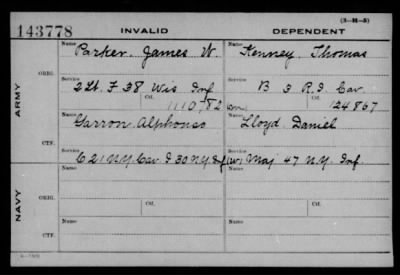 (3-H-5)
143778 INVALID DEPENDENT
Name Name
Parker, James W. Kenney, Thomas
ORIG.
Service Service
2 Lt. F 38 Wis Inf B 3 R.I. Cav.
Ctf. Ctf.
1110,782 124867
ARMY
Name Name
Garron Alphonso Lloyd, Daniel
CTF.
Service Service
C 21 N.Y. Cav. I 30 N.Y. Inf Maj 47 N.Y. Inf.
Name Name
ORIG.
Service Service
Ctf. Ctf.
NAVY
Name Name
CTF.
Service Service